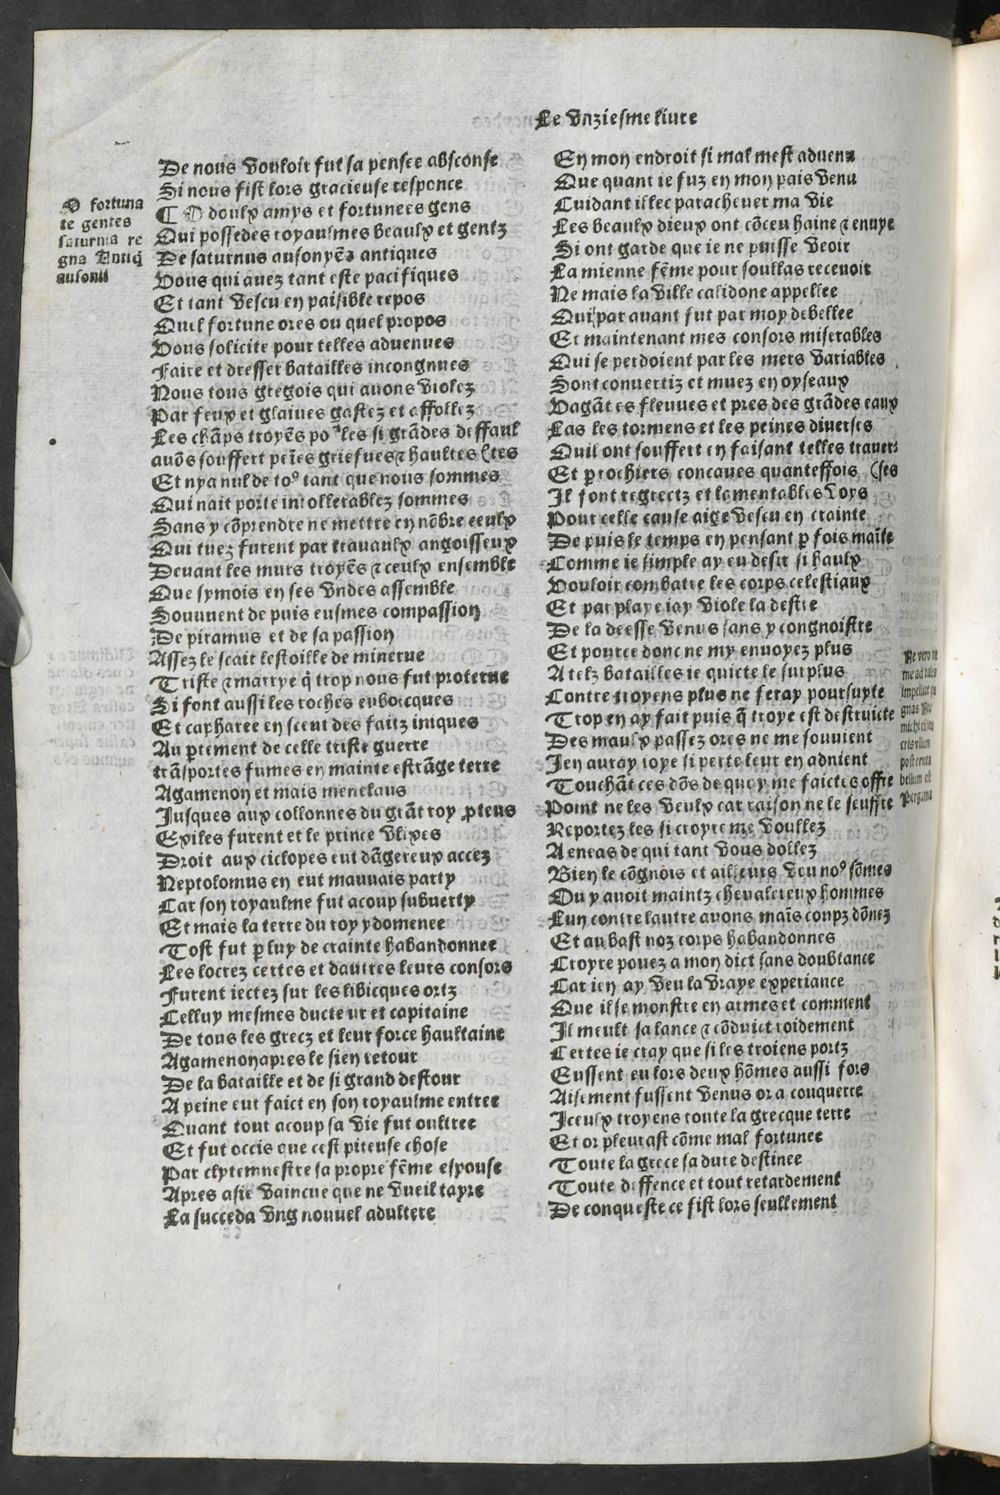 Le vnziesme liure
De nous vouloit fut sa pensee absconse
Si nous fist lors gracieuse responce
O fortuna
te gentes
saturnia re
gna Antiq̃
ausonii
¶ O doulx amys et fortunees gens
Qui possedes royaulmes beaulx et gentz
De saturnus ausonyẽs antiques
Vous qui auez tant este pacifiques
Et tant vescu en paisible repos
Quel fortune ores ou quel propos
Vous solicite pour telles aduenues
Faire et dresser batailles incongnues
Nous tous gregois qui auons violez
Par feux et glaiues gastez et affollez
Les chãps troyẽs po² les si grãdes deffaul
auõs souffert peines griefues ⁊ haultes (tes
Et nya nul de toꝰ tant que nous sommes
Qui nait porte intollerablez sommes
Sans y cõprendre ne mettre en nõbre ceulx
Qui tuez furent par trauaulx angoisseux
Deuant les murs troyẽs ⁊ ceulx ensemble
Que symois en ses vndes assemble
Souuent de puis eusmes compassion
De piramus et de sa passion
Assez le scait lestoille de minerue
Triste ⁊ martye q̃ trop nous fut proterue
Si font aussi les roches euboicques
Et capharee en sceut des faitz iniques
Au ꝑtement de celle triste guerre
trãsportes fumes en mainte estrãge terre
Agamenon et mais menelaus
Jusques aux collonnes du grãt roy ꝓteus
Exiles furent et le prince vlixes
Droit aux ciclopes eut dãgereux accez
Neptolomus en eut mauuais party
Car son royaulme fut acoup subuerty
Et mais la terre du roy ydomenee
Tost fut ꝑ luy de crainte habandonnee
Les locrez certes et dautres leurs consors
Furent iectez sur les libicques ortz
Celluy mesmes ducteur et capitaine
De tous les grecz et leur force haultaine
Agamenon apres le sien retour
De la bataille et de si grand destour
A peine eut faict en son royaulme entree
Quant tout acoup sa vie fut oultree
Et fut occis que cest piteuse chose
Par clytemnestre sa propre fẽme espouse
Apres asie vaincue que ne vueil tayre
La succeda vng nouuel adultere
En mon endroit si mal mest aduenu
Que quant ie fuz en mon pais venu
Cuidant illec paracheuer ma vie
Les beaulx dieux ont cõceu haine ⁊ enuye
Si ont garde que ie ne puisse veoir
La mienne fẽme pour soullas receuoir
Ne mais la ville calidone appellee
Qui par auant fut par moy debellee
Et maintenant mes consors miserables
Qui se perdoient par les mers variables
Sont conuertiz et muez en oyseaux
Vagãt es fleuues et pres des grãdes eaux
Las les tormens et les peines diuerses
Quil ont souffert en faisant telles trauer
Et ꝑ rochiers concaues quanteffois (ses
Il font regrectz et lamentables voys
Pour celle cause aige vescu en crainte
De puis le temps en pensant ꝑ fois mainte
Comme ie simple ay eu desir si haulx
Vouloir combatre les corps celestiaux
Et par playe iay viole la destre
De la deesse venus sans y congnoistre
Et pource donc ne my enuoyez plus
A telz batailles ie quicte le surplus
Contre troyens plus ne feray poursuyte
Trop en ay fait puis q̃ troye est destruicte
Des maulx passez ores ne me souuient
Jen auray ioye si perte leur en aduient
Touchãt ces dõs de quoy me faictes offre
Point ne les veulx car raison ne le seuffre
Reportez les si croyre me voullez
A eneas de qui tant vous dollez
Bien le cõgnois et ailleurs veu noꝰ sõmes
Ou y auoit maintz cheualereux hommes
Lun contre lautre auons mais coupz dõnez
Et au bast noz corps habandonnes
Croyre pouez a mon dict sans doubtance
Car ien ay veu la vraye experiance
Que il se monstre en armes et comment
Il meult sa lance ⁊ cõduict roidement
Certes ie cray que si les troiens portz
Eussent eu lors deux hõmes aussi fors
Aisement fussent venus or a couquerre
Iceulx troyens toute la grecque terre
Et or pleurast cõme mal fortunee
Toute la grece sa dure destinee
Toute deffence et tout retardement
De conqueste ce fist lors seullement
Ne vero
me ad tales
impellite pu
gnas
post eruta
bellum
Pergama